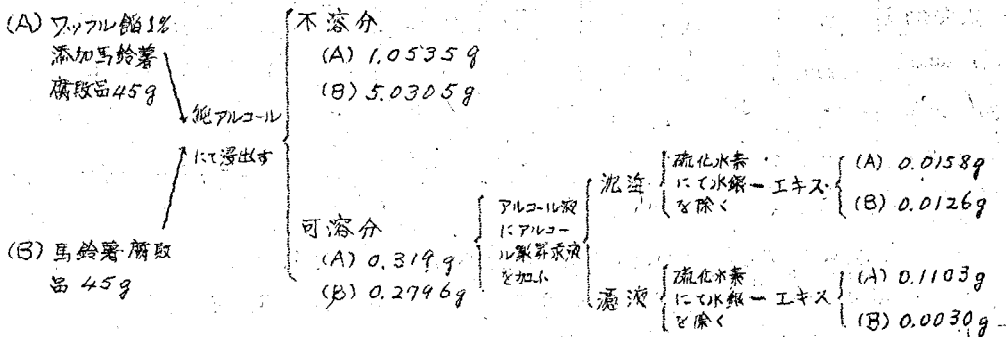 (A) ワッフル餡1%
添加馬鈴薯
腐敗品45g
(B) 馬鈴薯腐敗
品 45g
純アルコール
にて浸出す
不溶分
(A) 1.0535g
(B) 5.0305g
可溶分
(A) 0.319g
(B) 0.2796g
アルコール液
にアルコー
ル製昇汞液
を加ふ
沈渣
硫化水素
にて水銀
を除く
エキス
(A) 0.0158g
(B) 0.0126g
濾液
硫化水素
にて水銀
を除く
エキス
(A) 0.1103g
(B) 0.0030g